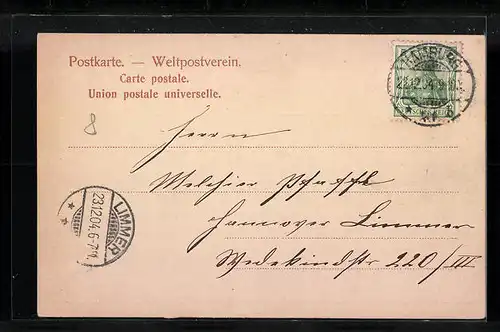 Postkarte. — Weltpostverein.
Carte postale.
Union postale universelle.
HAMBURG
22.12.04
8
Herrn
Melchior
Hannover Limmer
Wedekindstr 220/III
LIMMER
23.12.04.6-7N.
* *